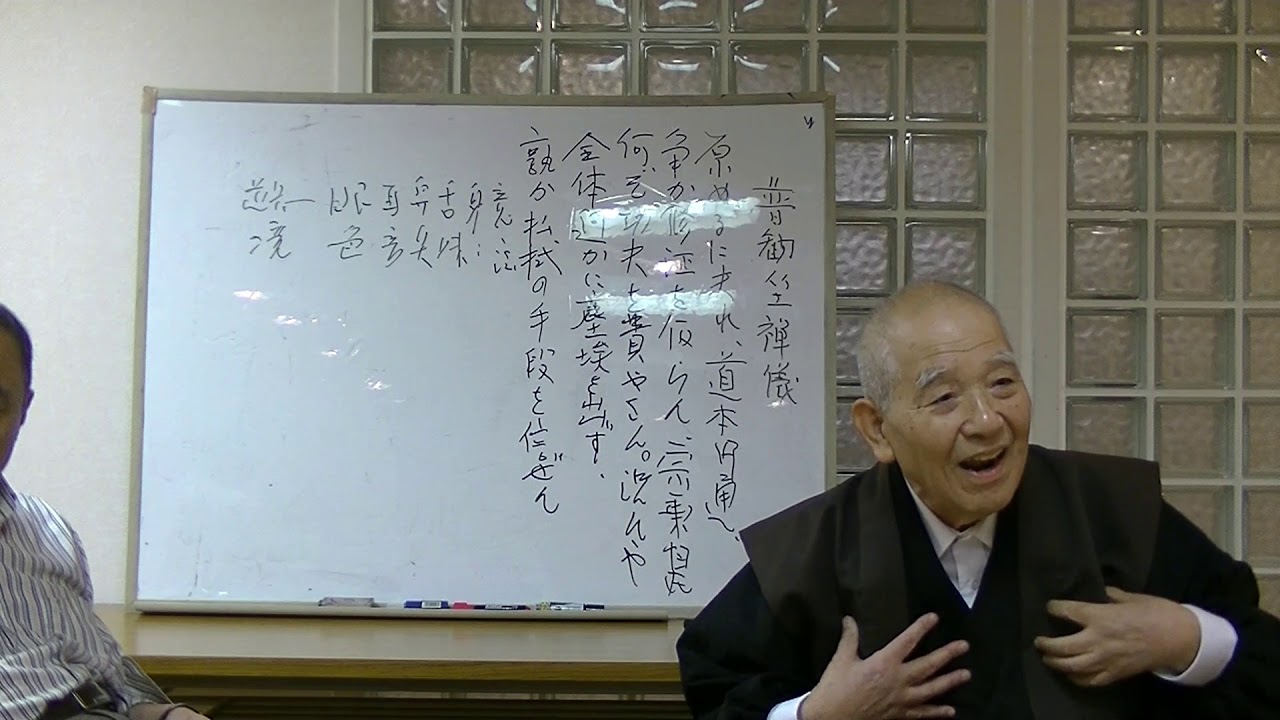 普勧坐禅儀
原ぬるに夫れ、道本円通、
争か修証を仮らん、宗乗自在
何ぞ功夫を費やさん。況んや
全体迥かに塵埃を出づ、
孰か払拭の手段を信ぜん
眼耳鼻舌身意
境 色音味法